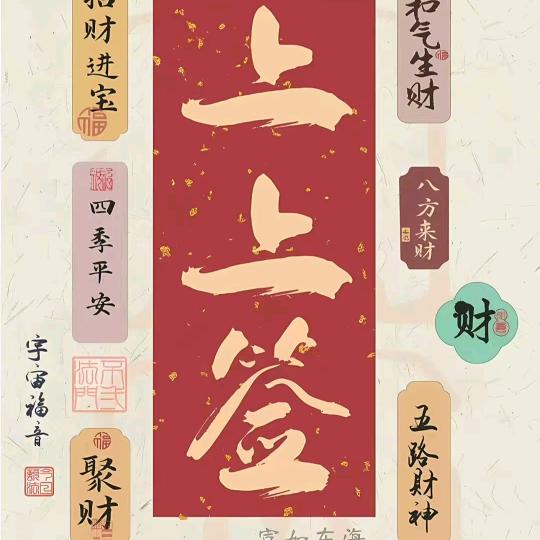 招财进宝
四季平安
宇宙福音
聚财
上上签
和气生财
八方来财
财
五路財神
福
不二法門